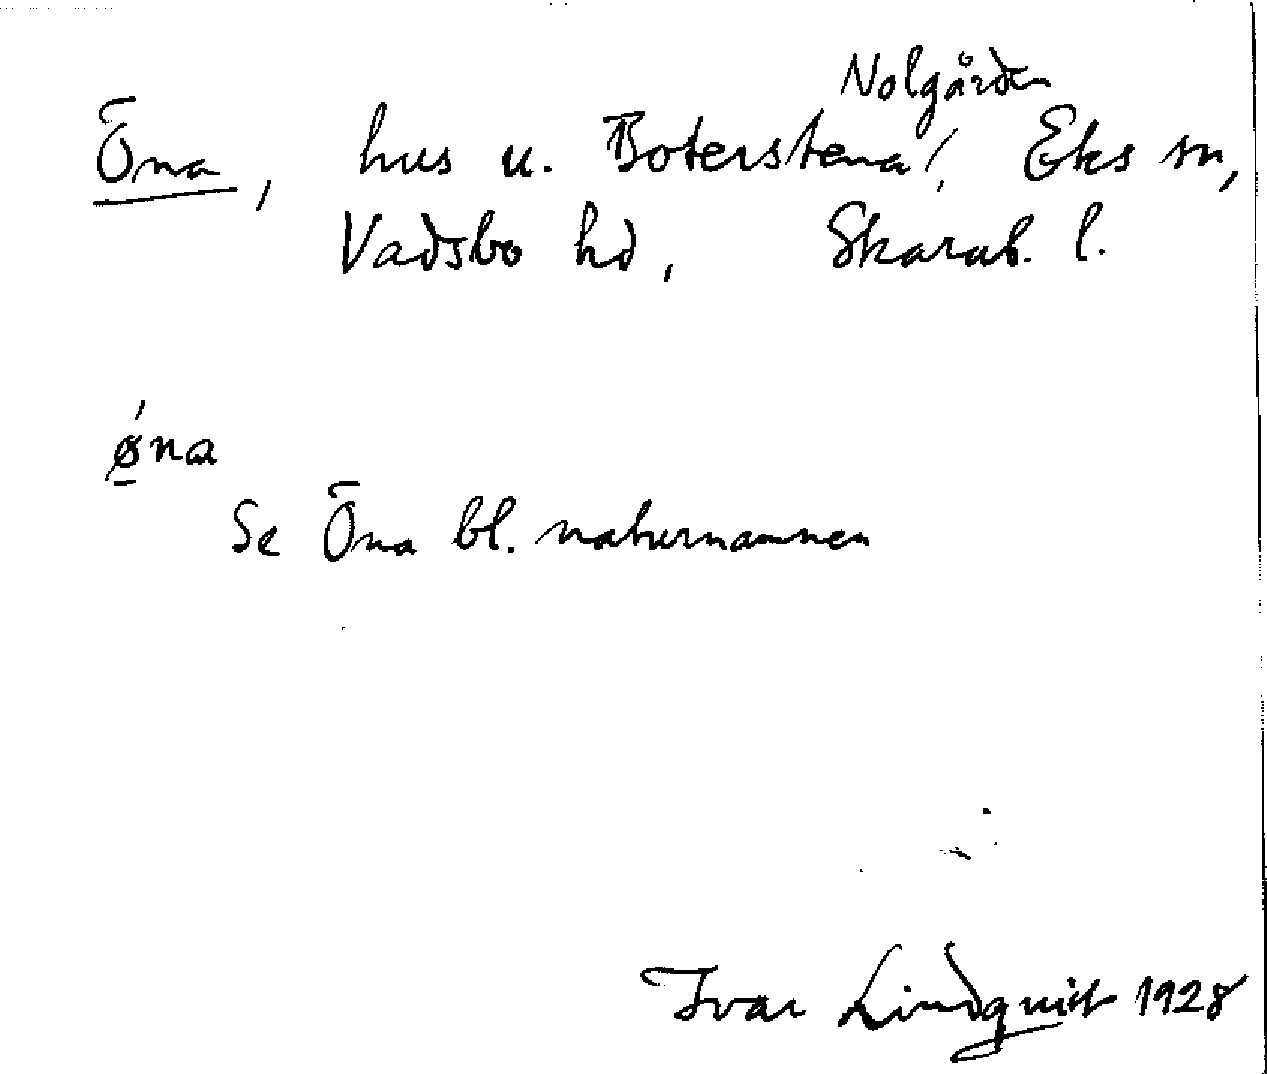 Öna, hus u. Boterstena, Nolgården, Eks sn,
Vadsbo hd, Skarab. l.
ǿna
Se Öna bl. naturnamnen
Ivar Lindquist 1928